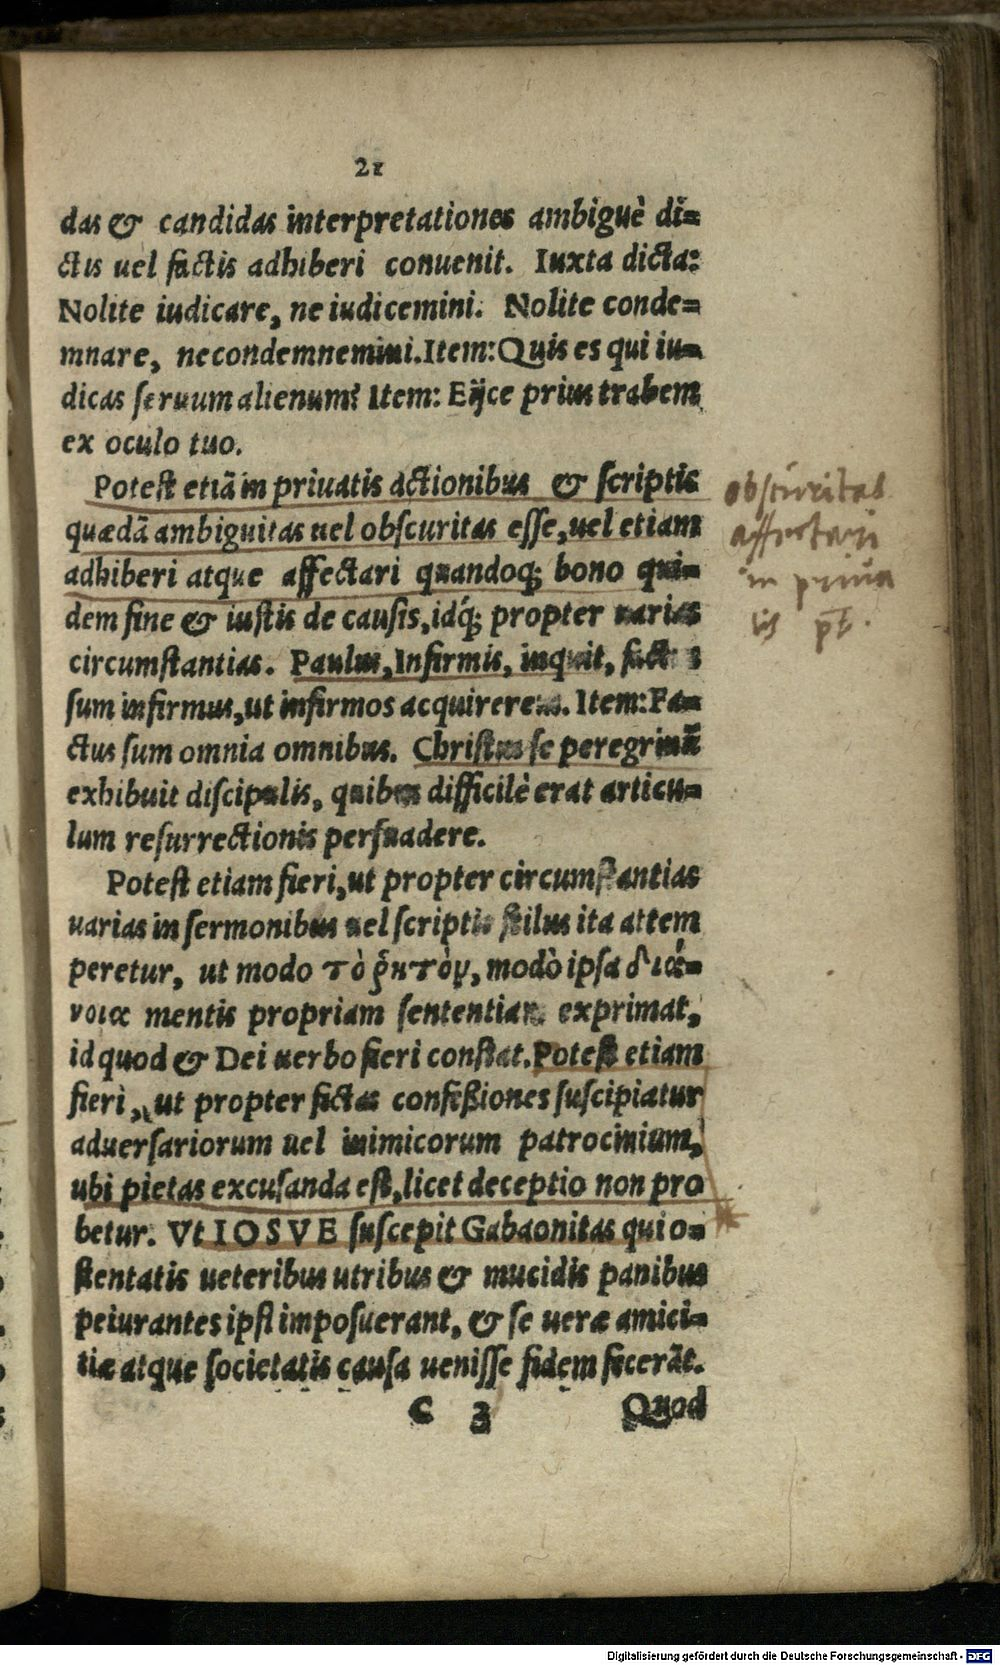 21
das & candidas interpretationes ambiguè di=
ctis uel factis adhiberi conuenit. Iuxta dicta:
Nolite iudicare, ne iudicemini. Nolite conde=
mnare, ne condemnemini. Item: Quis es qui iu=
dicas seruum alienum? Item: Eijce prius trabem
ex oculo tuo.
Potest etiã in priuatis actionibus & scriptis
quædã ambiguitas uel obscuritas esse, uel etiam
adhiberi atque affectari quandoq; bono qui=
dem fine & iustis de causis, idq́; propter uarias
circumstantias. Paulus, Infirmis, inquit, factus
sum infirmus, ut infirmos acquirerem. Item: Fa=
ctus sum omnia omnibus. Christus se peregrinũ
exhibuit discipulis, quibus difficilè erat articu=
lum resurrectionis persuadere.
Potest etiam fieri, ut propter circumstantias
uarias in sermonibus uel scriptis stilus ita attem
peretur, ut modo τὸ ῥητὸν, modò ipsa διά=
νοια mentis propriam sententiam exprimat,
id quod & Dei uerbo fieri constat. Potest etiam
fieri, ut propter fictas confeßiones suscipiatur
aduersariorum uel inimicorum patrocinium,
ubi pietas excusanda est, licet deceptio non pro
betur. Vt IOSVE suscepit Gabaonitas qui o=
stentatis ueteribus utribus & mucidis panibus
peiurantes ipsi imposuerant, & se ueræ amici=
tiæ atque societatis causa uenisse fidem fecerãt.
C 3 Quod
obscuritas
affectari
in priua
tis pt.
Digitalisierung gefördert durch die Deutsche Forschungsgemeinschaft - DFG